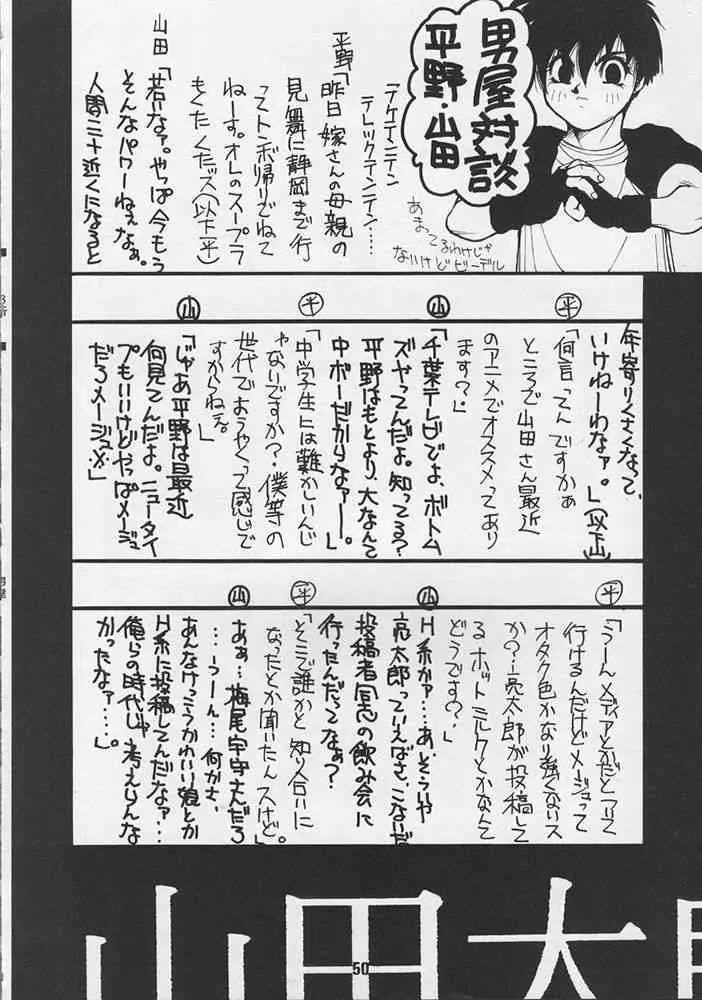 男屋対談
平野・山田
テケテンテン
テレックテンテン…
あまってるわけじゃ
ないけどビーデル
平野「昨日嫁さんの母親の
見舞に静岡まで行
ってトンボ帰りでねて
ねーす。オレのスープラ
もくたくたッス」(以下平)
山田「若いなァ。やっぱ今もう
そんなパワーねぇなぁ。
人間三十近くになると
年寄りくさくなって、
いけねーわなァ。」(以下山)
平「何言ってんですかぁ
ところで山田さん最近
のアニメでオススメってあり
ます?」
山「千葉テレビでよ、ボトム
ズやってんだよ。知ってる?
平野はもとより、大なんて
中ボーだからなァー。」
平「中学生には難かしいんじ
ゃないですか?僕等の
世代でようやくって感じで
すからねぇ。」
山「じゃあ平野は最近
何見てんだよ。ニュータイ
プもいいけどやっぱメージュ
だろメージュ。」
平「うーんメディアとかだとついて
行けるんだけどメージュって
オタク色かなり強くないス
か?…亮太郎が投稿して
るホットミルクとかなんて
どうです?」
山 H系かァ…あ、そういや
亮太郎っていえばさ、こないだ
投稿者同志の飲み会に
行ったんだってなぁ?
平「そこで誰かと知り合いに
なったとか聞いたんスけど。
山 あぁ…梅尾宇守さんだろ
…うーん…何かさ、
あんなけっこうかわいい娘とか
H系に投稿してんだなァ…
俺らの時代じゃ考えらんな
かったなァ…。」
山田太
50